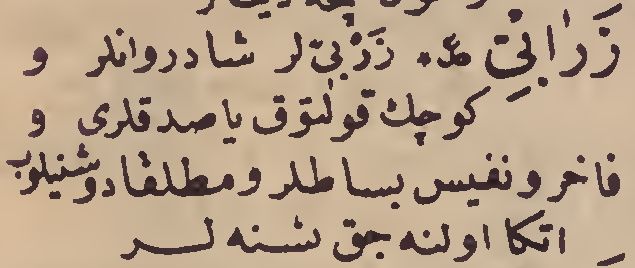 زَرَابِيّ ع۰ زَرْبِيّ لر شادروانلر و
كوچك قولتوق ياصدقلرى و
فاخر و نفيس بساطلر و مطلقا دوشنيلوب
اتكا اولنه جق نسنه لر